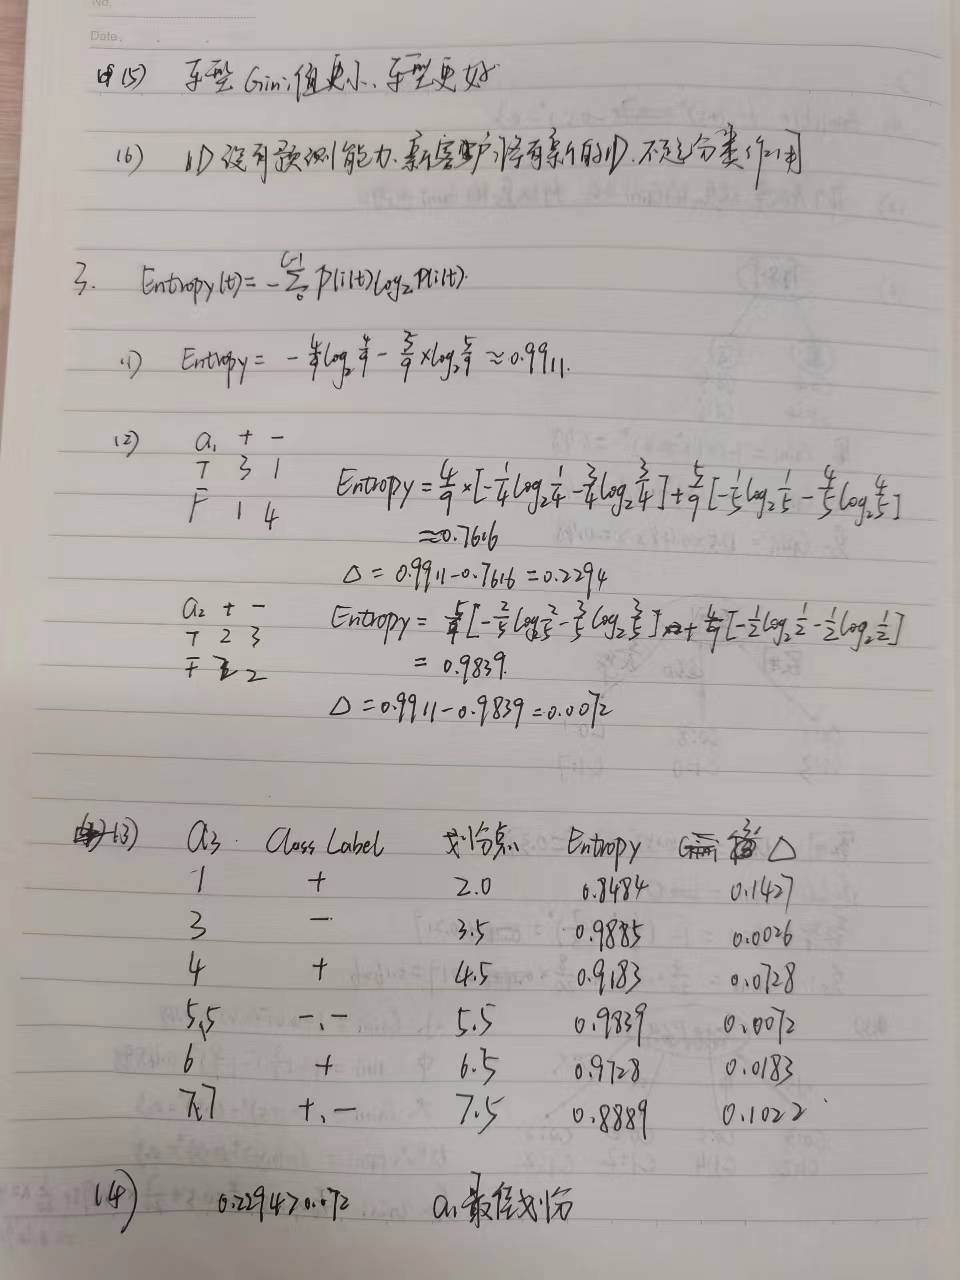 No.
Date.
(5) 车型Gini值更小、车型更好
(6) ID没有预测能力、新客户将有新的ID、不起分类作用
3. Entropy(t)=-∑p(i|t)log₂p(i|t).
(1) Entropy = -4/9log₂4/9 - 5/9×log₂5/9 ≈0.9911.
(2) a₁ + -
T 3 1
F 1 4
Entropy=4/9×[-1/4log₂1/4-3/4log₂3/4]+5/9[-1/5log₂1/5-4/5log₂4/5]
≈0.7616
Δ = 0.9911-0.7616=0.2294
a₂ + -
T 2 3
F 2 2
Entropy= 5/9[-2/5log₂2/5-3/5log₂3/5]+4/9[-1/2log₂1/2-1/2log₂1/2]
= 0.9839.
Δ=0.9911-0.9839=0.0072
(3) a₃. Class Label 划分点 Entropy Δ
1 + 2.0 0.8484 0.1427
3 - 3.5 0.9885 0.0026
4 + 4.5 0.9183 0.0728
5,5 -,- 5.5 0.9839 0.0072
6 + 6.5 0.9728 0.0183
7,7 +,- 7.5 0.8889 0.1022
(4) 0.2294>0.072 a₁最佳划分